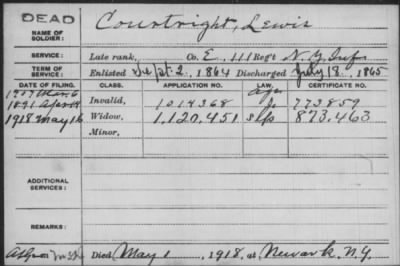 DEAD
NAME OF SOLDIER: Courtright, Lewis
SERVICE: Late rank, Co. E, 111 Reg't N.Y. Inf.
TERM OF SERVICE: Enlisted Sept. 2, 1864 Discharged July 18, 1865
DATE OF FILING. CLASS. APPLICATION NO. LAW. CERTIFICATE NO.
1907 Mar. 6
1891 Apr 14 Invalid, 1014368 773859
1918 May 16 Widow, 1,120,451 873,463
Minor,
ADDITIONAL SERVICES:
REMARKS:
Died May 1, 1918, at Newark, N.Y.